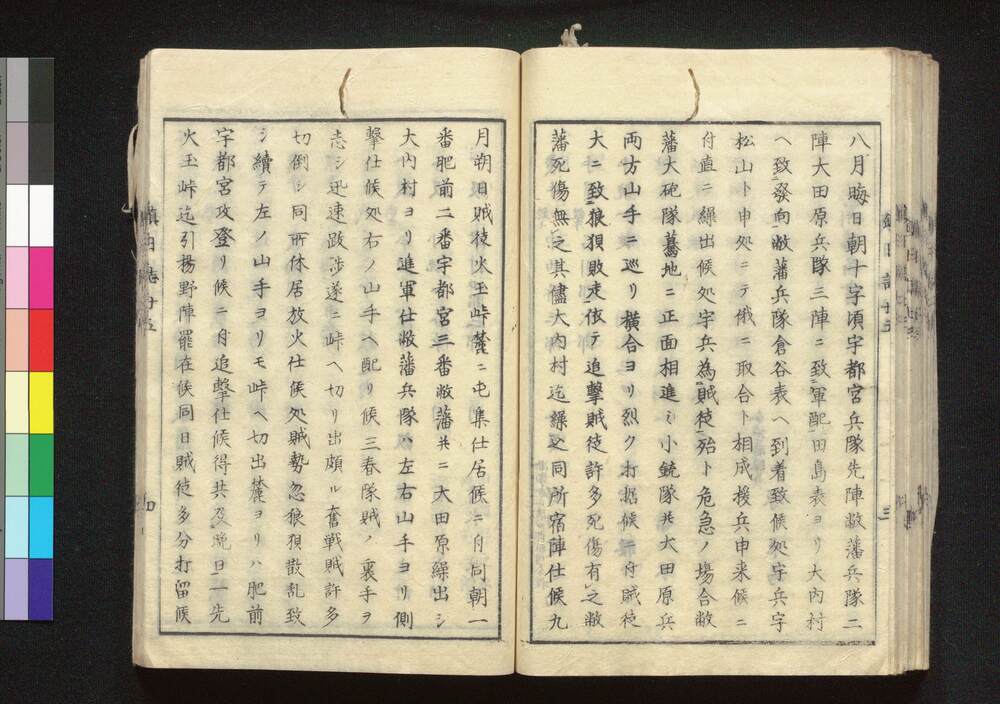 八月晦日朝十字頃宇都宮兵隊先陣敝藩兵隊二
陣大田原兵隊三陣ニ致軍配田島表ヨリ大内村
ヘ致發向敝藩兵隊倉谷表ヘ到着致候処宇兵字
松山ト申処ニテ俄ニ取合ト相成援兵申来候ニ
付直ニ繰出候処宇兵為賊徒殆ト危急ノ場合敝
藩大砲隊驀地ニ正面相進ミ小銃隊共大田原兵
両方山手ニ巡リ横合ヨリ烈ク打据候ニ付賊徒
大ニ致狼狽敗走依テ追撃賊徒許多死傷有之敝
藩死傷無之其儘大内村迄繰込同所宿陣仕候九
月朔日賊徒火玉峠麓ニ屯集仕居候ニ付同朝一
番肥前二番宇都宮三番敝藩共ニ大田原繰出シ
大内村ヨリ進軍仕敝藩兵隊ハ左右山手ヨリ側
撃仕候処右ノ山手ヘ配リ候三春隊賊ノ裏手ヲ
志シ迅速跋渉遂ニ峠ヘ切リ出頗ル奮戦賊許多
切倒シ同所休居放火仕候処賊勢忽狼狽散乱致
シ續テ左ノ山手ヨリモ峠ヘ切出麓ヨリハ肥前
宇都宮攻登リ候ニ付追撃仕候得共及晩日一先
火玉峠迄引揚野陣罷在候同日賊徒多分打留候
三
四